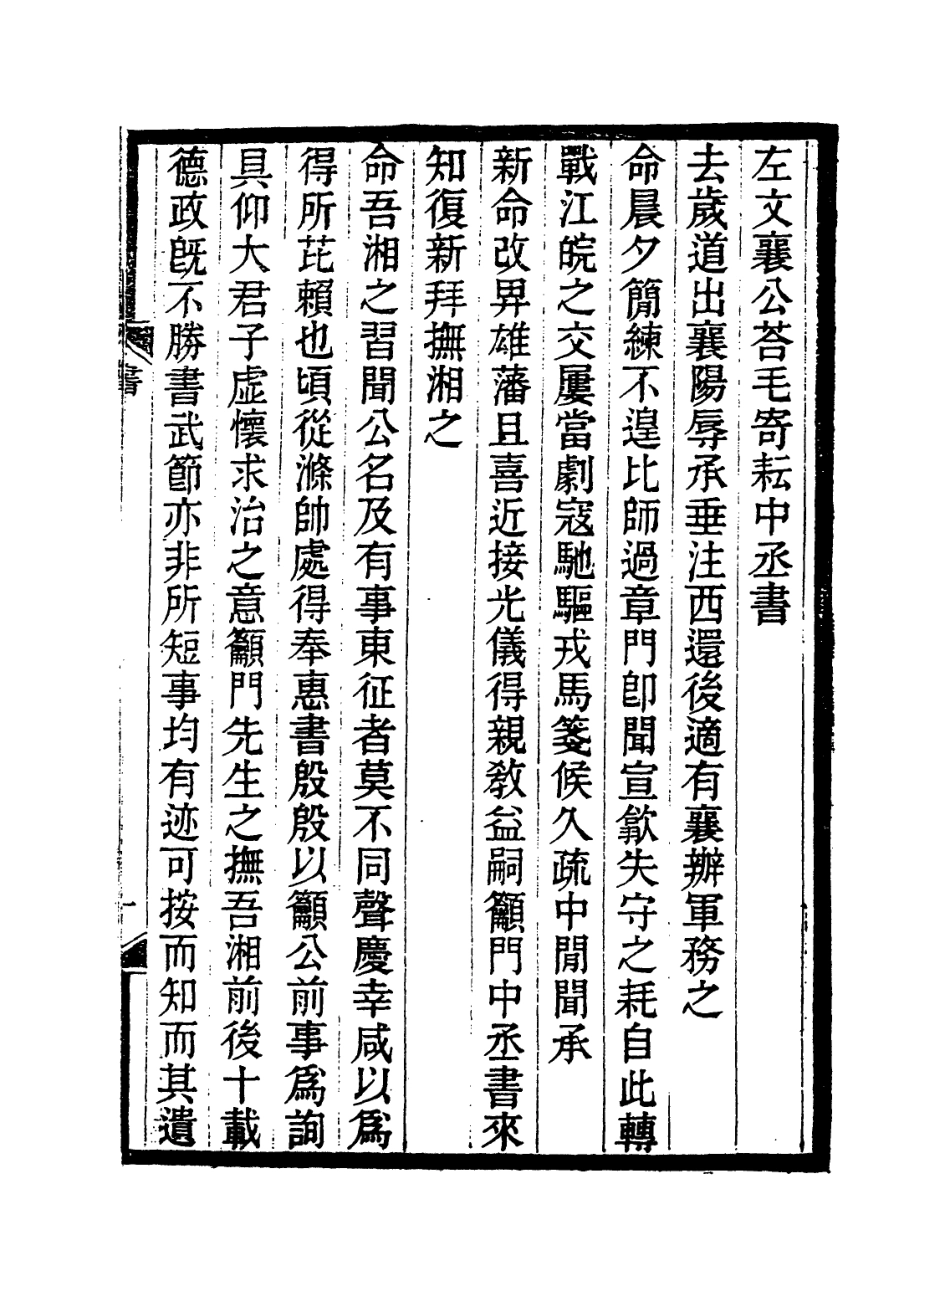 左文襄公荅毛寄耘中丞書
去歲道出襄陽辱承垂注西還後適有襄辦軍務之
命晨夕簡練不遑比師過章門卽聞宣歙失守之耗自此轉
戰江皖之交屢當劇寇馳驅戎馬箋候久疏中閒聞承
新命改畀雄藩且喜近接光儀得親敎益嗣籲門中丞書來
知復新拜撫湘之
命吾湘之習聞公名及有事東征者莫不同聲慶幸咸以爲
得所芘賴也頃從滌帥處得奉惠書殷殷以籲公前事爲詢
具仰大君子虛懷求治之意籲門先生之撫吾湘前後十載
德政旣不勝書武節亦非所短事均有迹可按而知而其遺
書
一